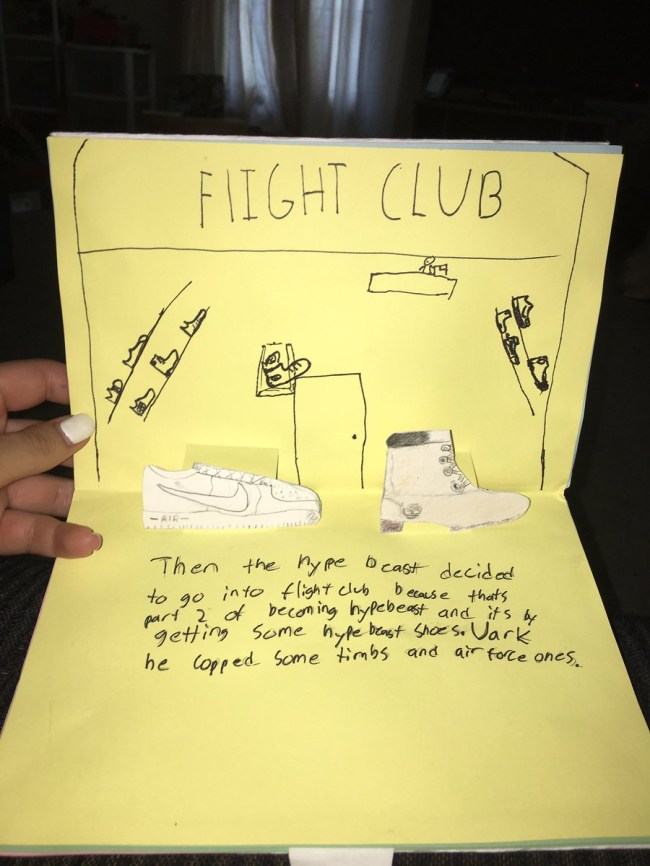 FlIGHT CLUB
- AIR -
Then the hype beast decided
to go into flight club because thats
part 2 of becoming hypebeast and its by
getting some hypebeast shoes. Vark
he copped some timbs and air force ones.